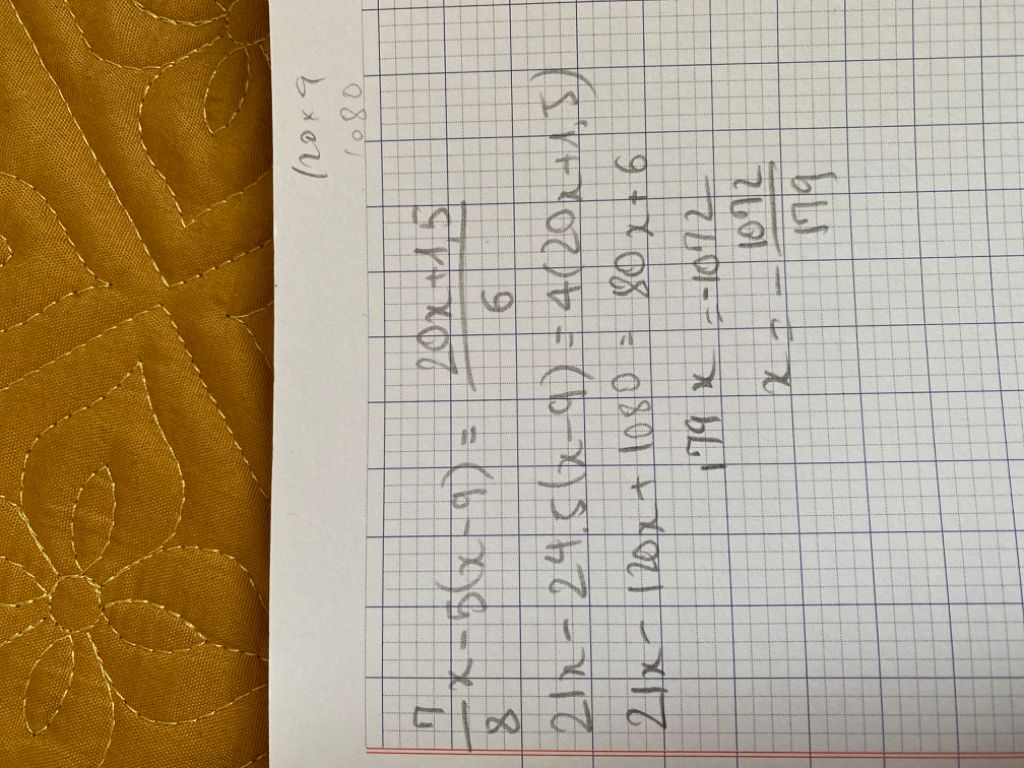 120 x 9
1080
7/8 x - 5(x - 9) = (20x + 1,5)/6
21x - 24.5(x - 9) = 4(20x + 1,5)
21x - 120x + 1080 = 80x + 6
179 x = -1072
x = - 1072/179